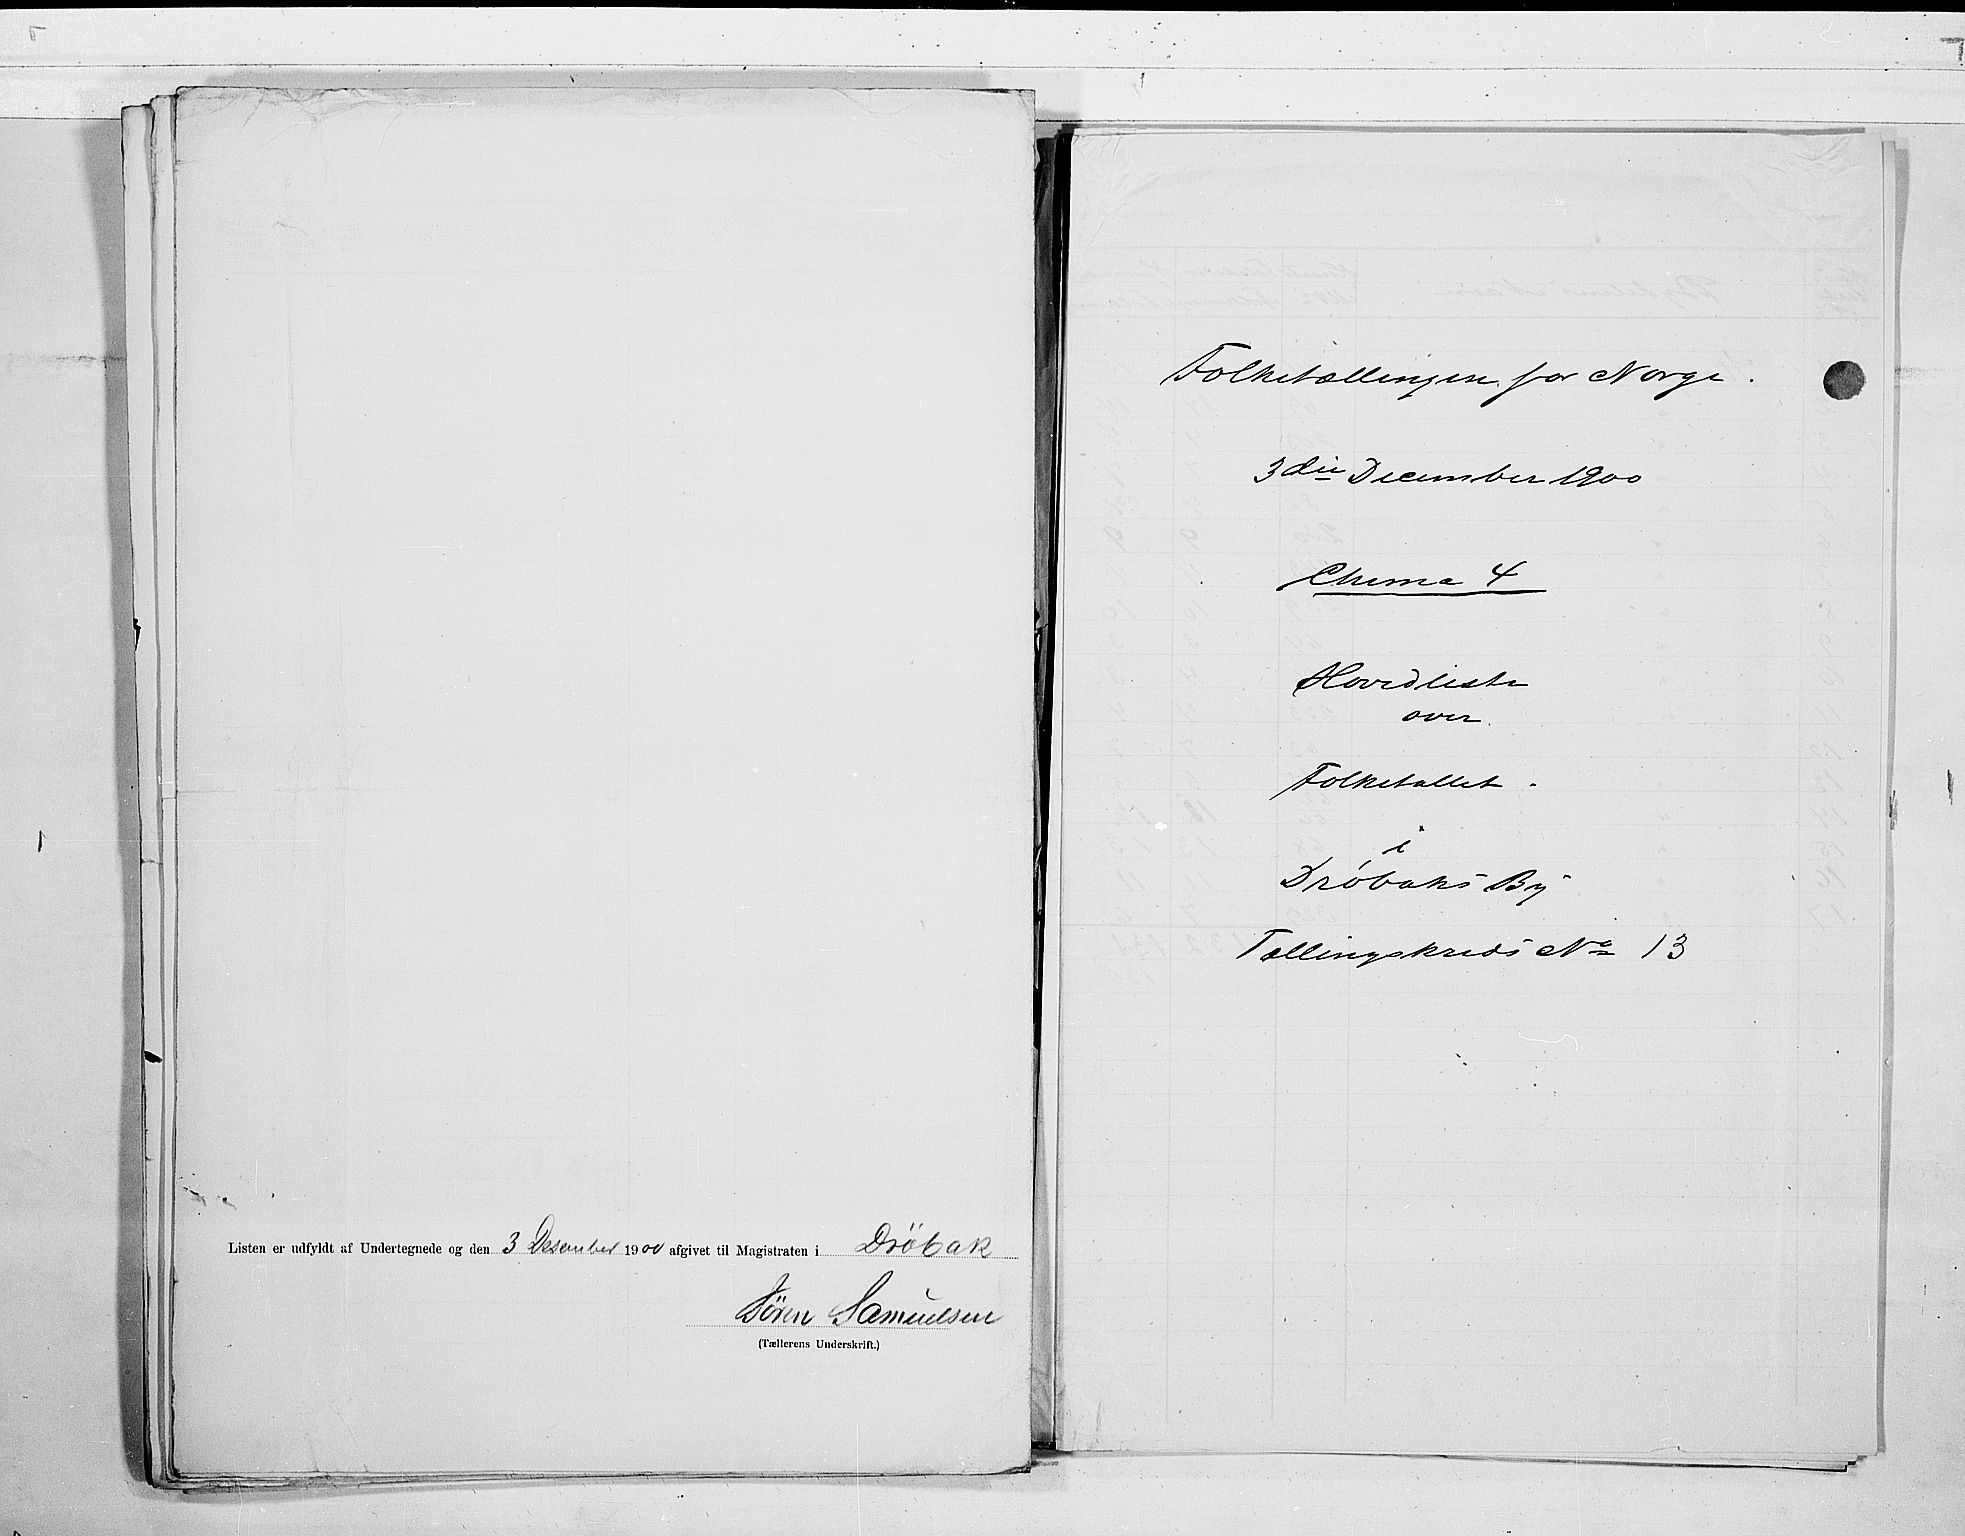 Listen er udfyldt af Undertegnede og den 3 Desember 1900 afgivet til Magistraten i Dröbak
Sören Samuelsen
(Tællerens Underskrift.)
Folketællingen for Norge.
3die December 1900
Chema 4
Hovedliste
over
Folketallet.
i
Drøbaks By
Tællingskreds No 13